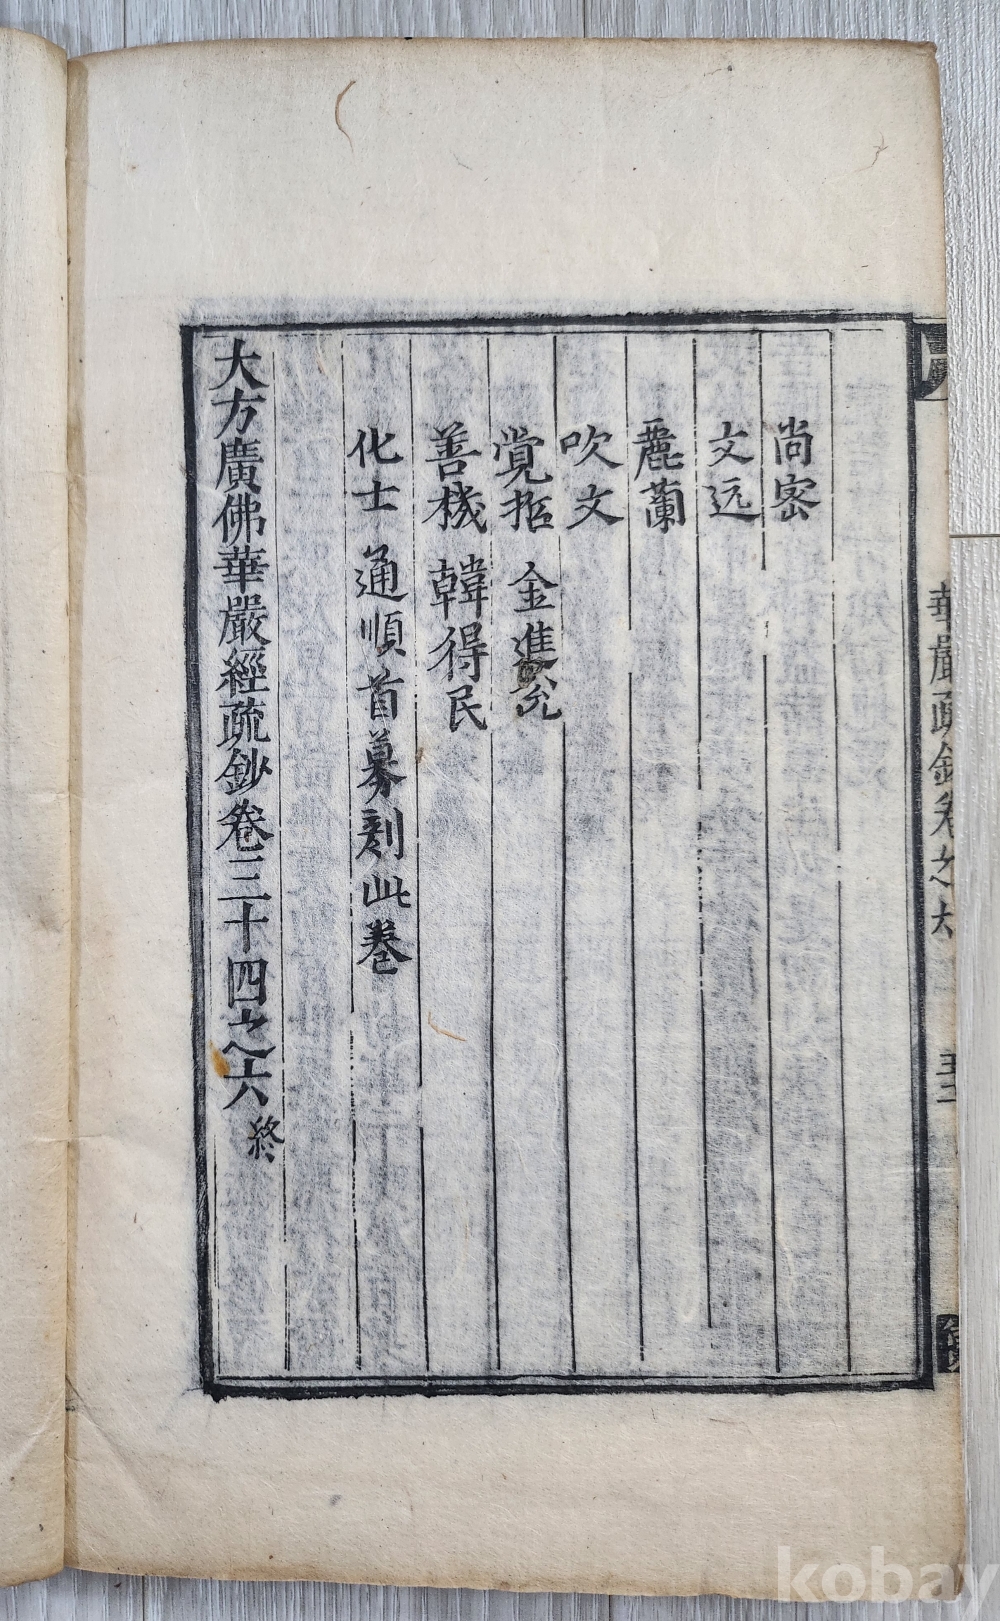 尚密
文远
麁蘭
吹文
覚指 金進允
善機 韓得民
化士 通順首募刻此卷
大方廣佛華嚴經疏鈔卷三十四之六 終
華嚴疏鈔卷之六
kobay